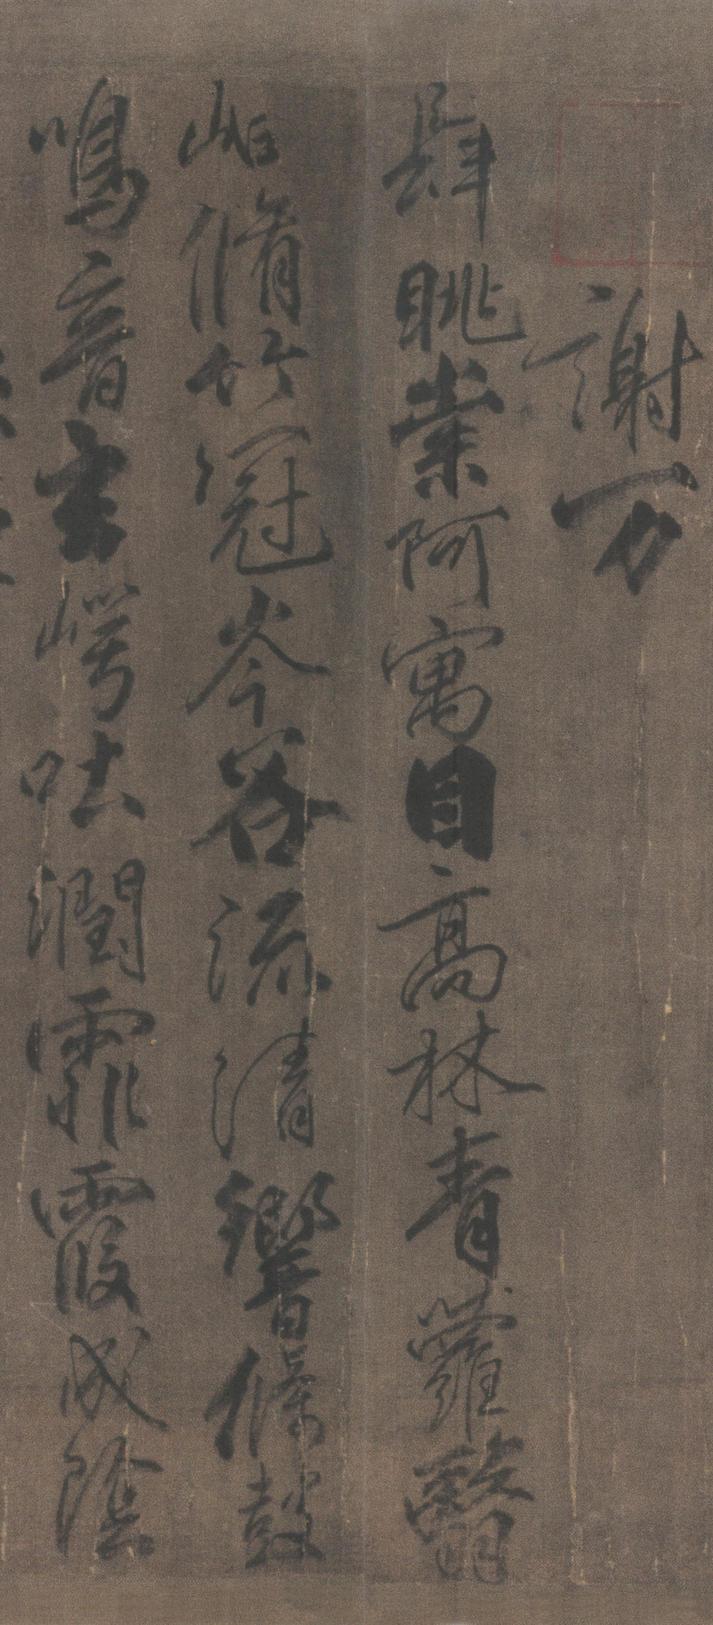 謝万
肆眺崇阿寓目高林青蘿翳
岫脩竹冠岑谷流清響條鼓
鳴音玄崿吐潤霏霞成陰